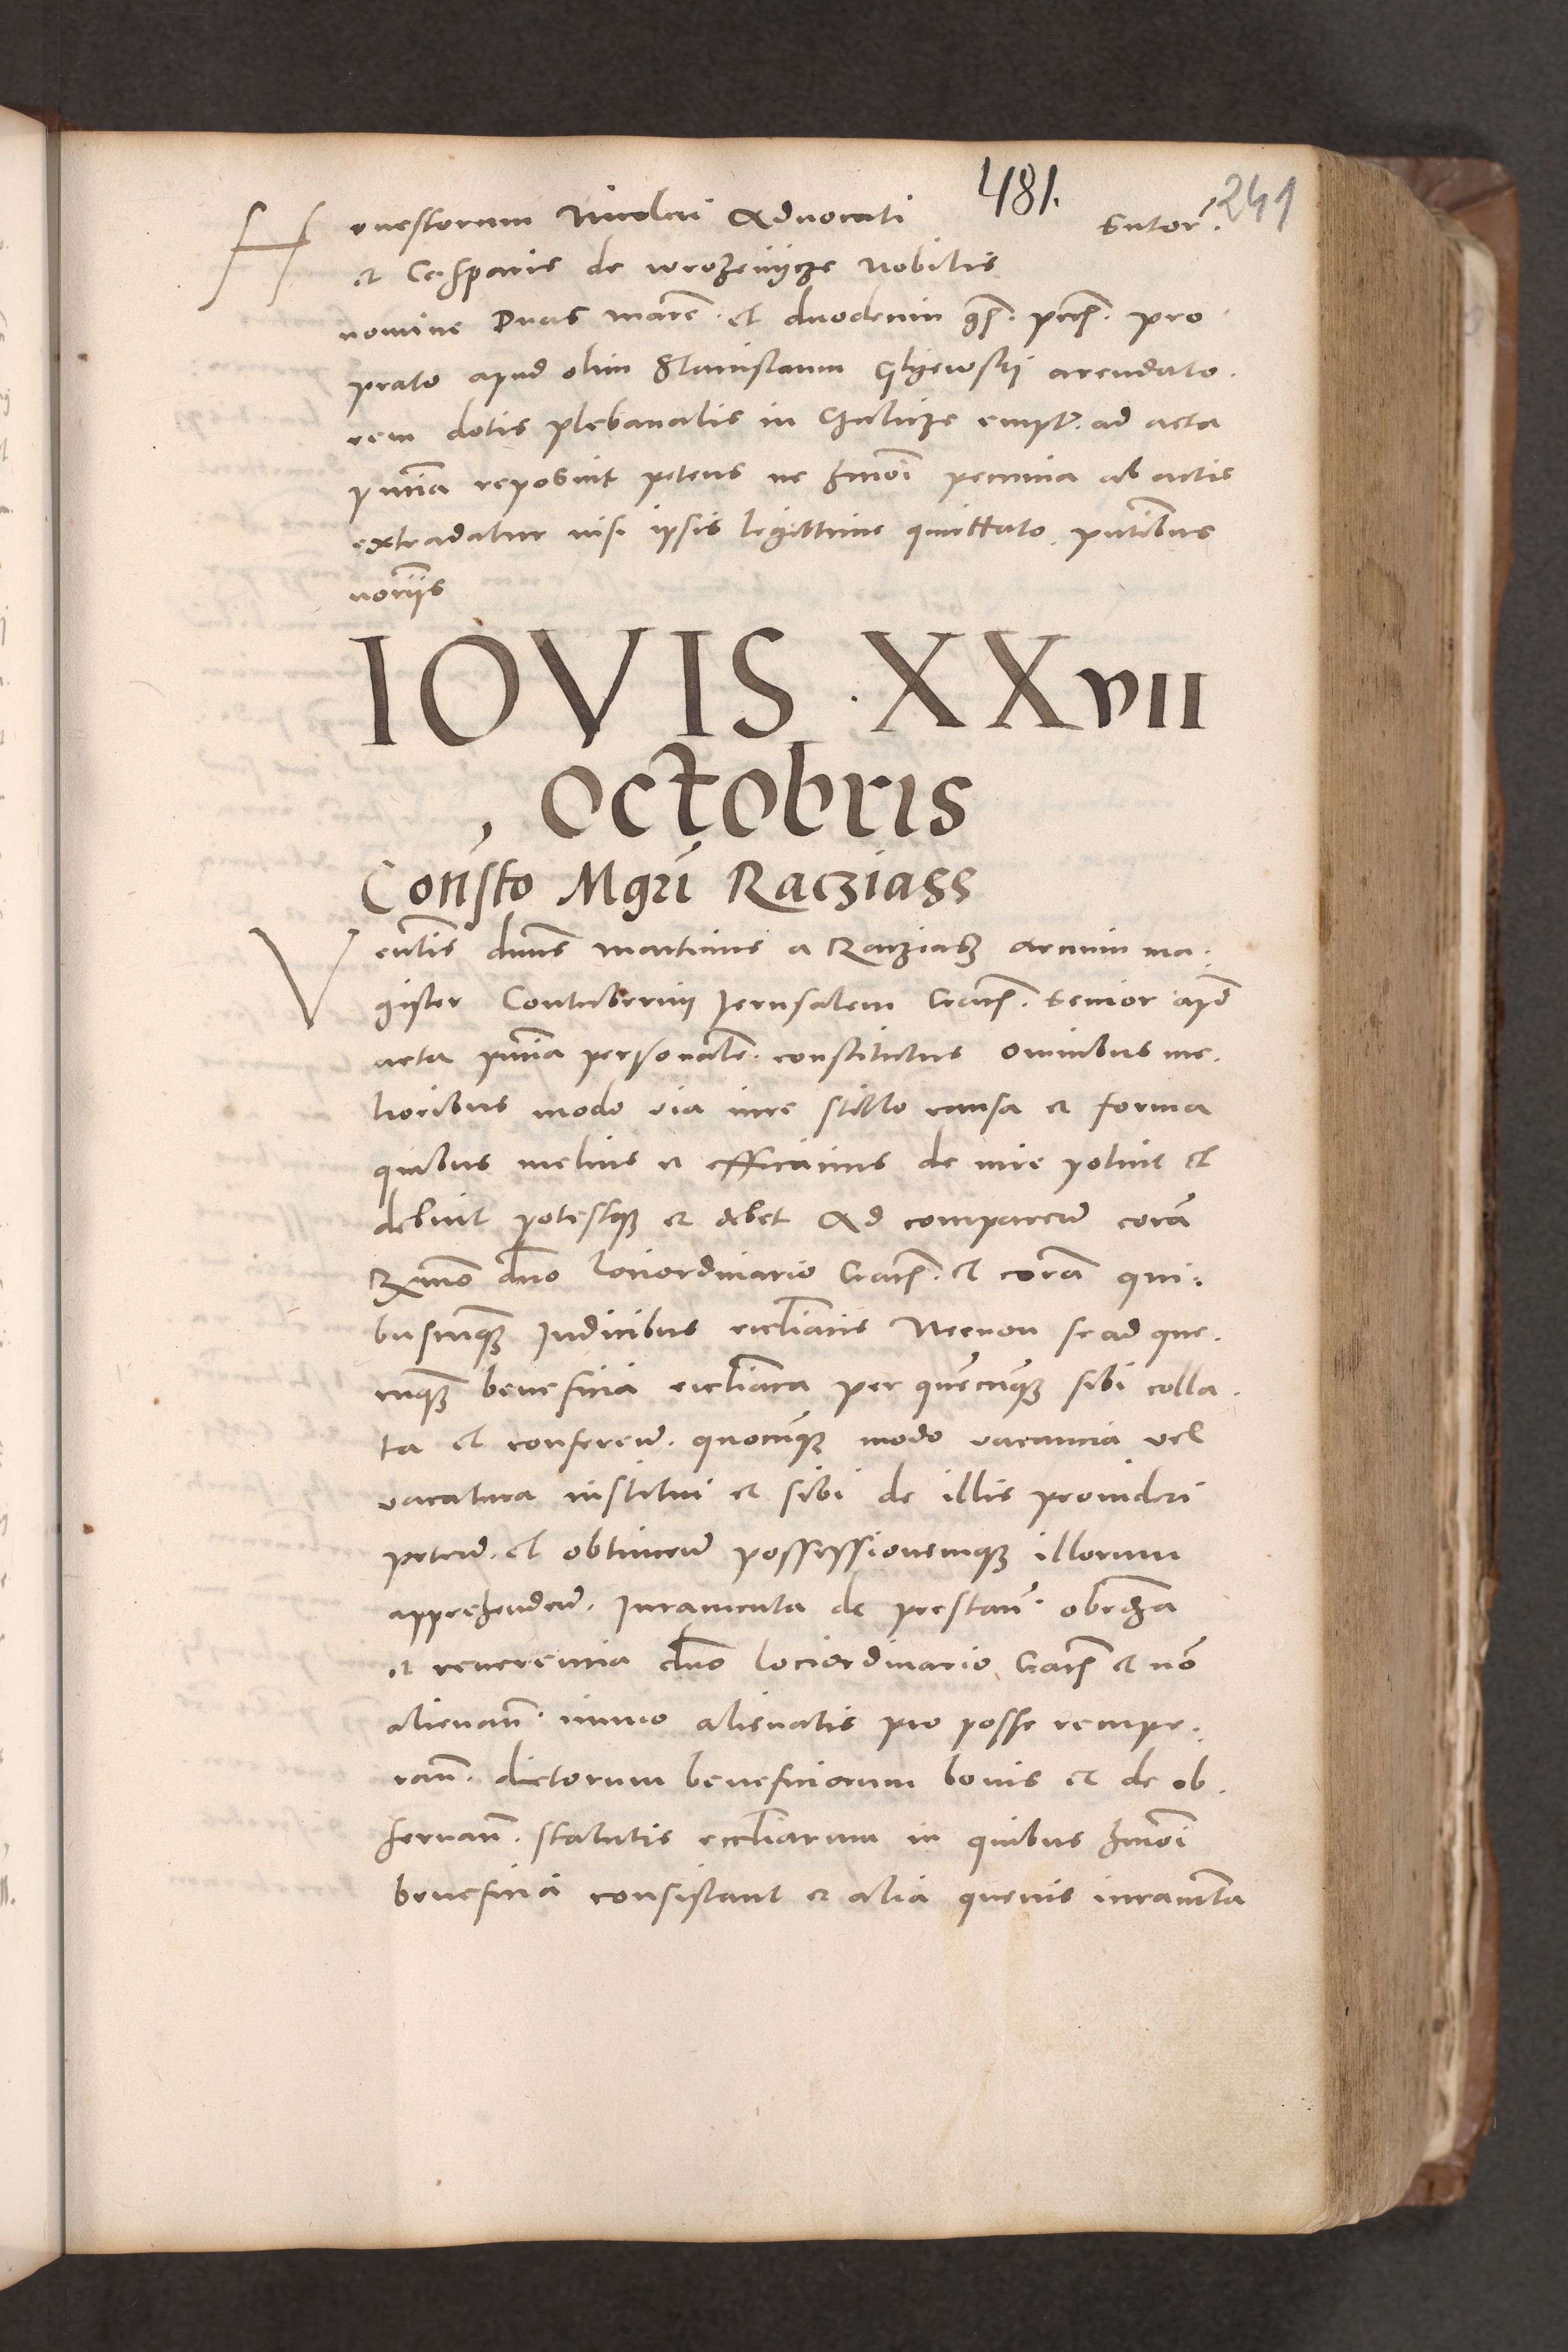 481.
241
Honestorum Nicolai Advocati Sutor.
et Casparis de wrozenijcze Nobilis
nomine Duas marc. et duodecim gr. pecu. pro
prato apud olim Stanislaum Glyewsky arendato.
rem dotis plebanalis in Gzalicze empt. ad acta
pntia reposuit petens ne hmoi pecunia ab actis
extradatur nisi ipsis legittime quittato. pntibus
noriis
IOVIS . XXVII
octobris
Constō Mgri Racziass
Venlis dnus martinus a Racziasz arcium ma.
gister Contubernij Jerusalem Crac. Senior apd
acta pntia personale. constitutus omnibus me.
lioribus modo via iure stillo causa et forma
quibus melius et efficacius de iure potuit et
debuit potestque et debet Ad comparend coram
Rmo dno lociordinario Crac. et coram qui.
buscunque Judicibus eccliacis Necnon se ad que.
cunque beneficia eccliaca per quemcunque sibi colla.
ta et conferend. quocunque modo vacancia vel
vacatura institui et sibi de illis provideri
petend. et obtinend possessionemque illorum
apprehendend. Juramenta de prestan. obedia
et reverencia dno lociordinario Crac et non
alienan. immo alienatis pro posse recupe.
ran. dictorum beneficiorum bonis et de ob.
servan. statutis eccliarum in quibus hmoi
beneficia consistant et alia quevis iuramta